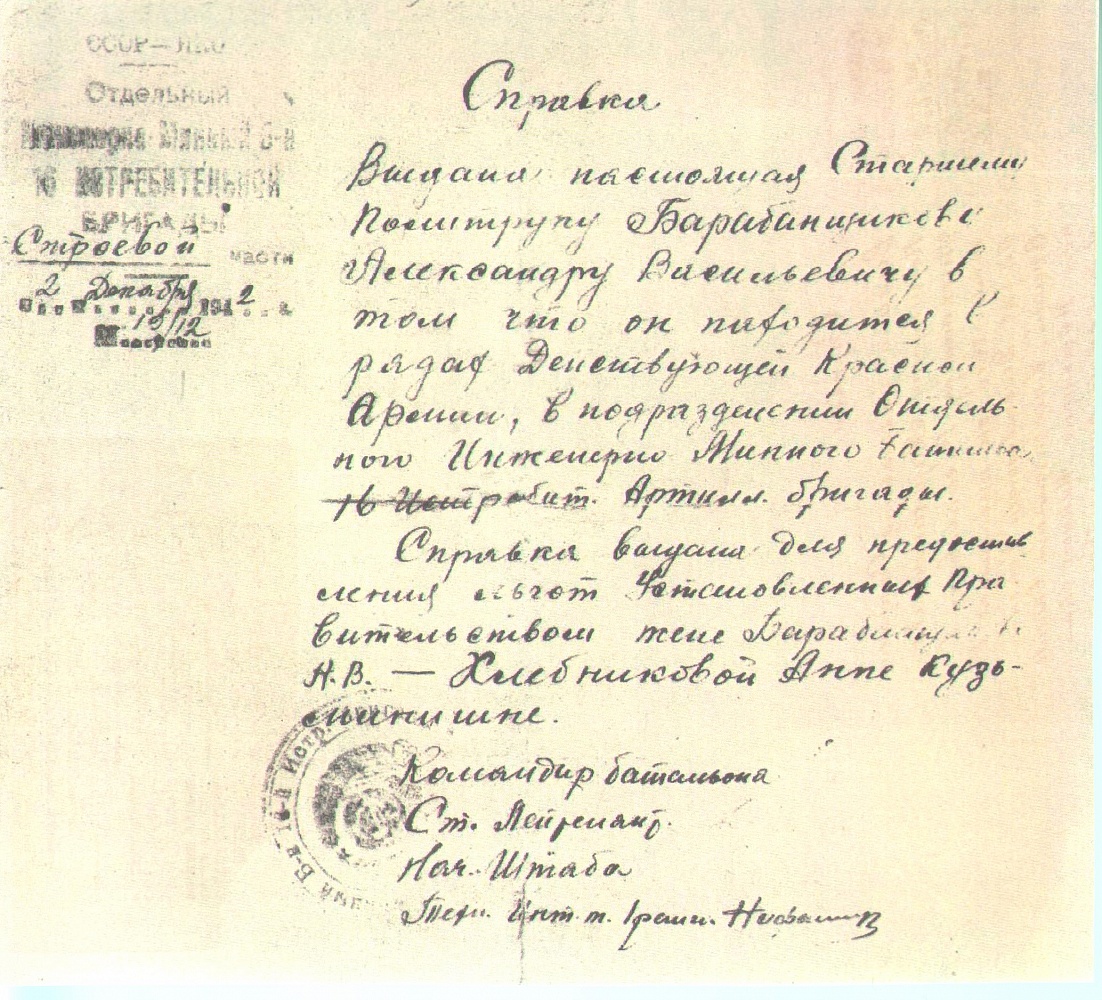 СССР—НКО
Отдельный
Инженерно-Минный Б-н
16 ИСТРЕБИТЕЛЬНОЙ
БРИГАДЫ
Строевой части
2 Декабря 1942 г.
№ 13/12
Справка
Выдана настоящая Старшему
Политруку Барабанщикову
Александру Васильевичу в
том что он находится в
рядах Действующей Красной
Армии, в подразделении Отдель-
ного Инженерно Минного Батальона
16 Истребит. Артилл. бригады.
Справка выдана для предостав
ления льгот Установленных Пра
вительством жене Барабанщикова
А.В. — Хлебниковой Анне Кузь-
миничне.
Командир батальона
Ст. Лейтенант
Нач. Штаба
Техн. Инт. I ранга
16-й Истр.